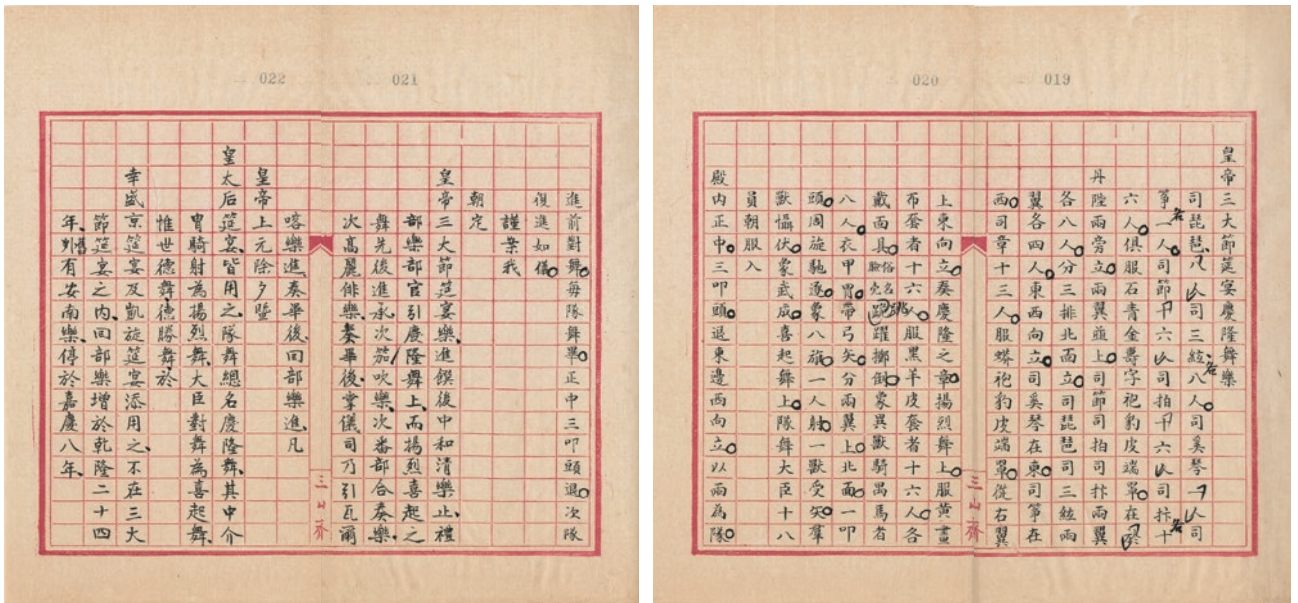 019
020
皇帝三大節筵宴慶隆舞樂
司琵琶八人司三絃八人司奚琴一人司
箏一人司節十六人司拍十六人司抃十
六人俱服石青金壽字袍豹皮端罩在
丹陛兩旁立兩翼並上司節司拍司抃兩翼
各八人分三排北面立司琵琶司三絃兩
翼各四人東西向立司奚琴在東司箏在
西司章十三人服蟒袍豹皮端罩從右翼
三山齋
上東向立奏慶隆之章揚烈舞上服黃畫
布套者十六人服黑羊皮套者十六人各
戴面具俗名臉兒跳躍擲倒象異獸騎禺馬者
八人衣甲冑帶弓矢分兩翼上北面一叩
頭周旋馳逐象八旗一人射一獸受矢羣
獸懾伏象武成喜起舞上隊舞大臣十八
員朝服入
殿內正中三叩頭退東邊西向立以兩為隊
021
022
進前對舞每隊舞畢正中三叩頭退次隊
復進如儀
謹案我
朝定
皇帝三大節筵宴樂進饌後中和清樂止禮
部樂部官引慶隆舞上而揚烈喜起之
舞先後進承次笳吹樂次番部合奏樂
次高麗俳樂奏畢後掌儀司乃引瓦爾
三山齋
喀樂進奏畢後回部樂進凡
皇帝上元除夕暨
皇太后筵宴皆用之隊舞總名慶隆舞其中介
冑騎射為揚烈舞大臣對舞為喜起舞
惟世德舞德勝舞於
幸盛京筵宴及凱旋筵宴添用之不在三大
節筵宴之內回部樂增於乾隆二十四
年舊列有安南樂停於嘉慶八年